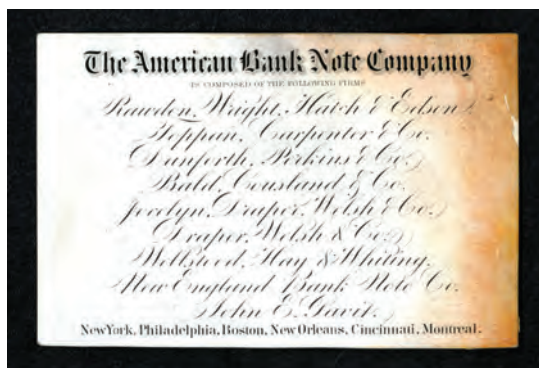 The American Bank Note Company
IS COMPOSED OF THE FOLLOWING FIRMS
Rawdon, Wright, Hatch & Edson
Toppan, Carpenter & Co.
Danforth, Perkins & Co.
Bald, Cousland & Co.
Jocelyn, Draper, Welsh & Co.
Draper, Welsh & Co.
Wellstood, Hay & Whiting.
New England Bank Note Co.
John E. Gavit.
New York, Philadelphia, Boston, New Orleans, Cincinnati, Montreal.